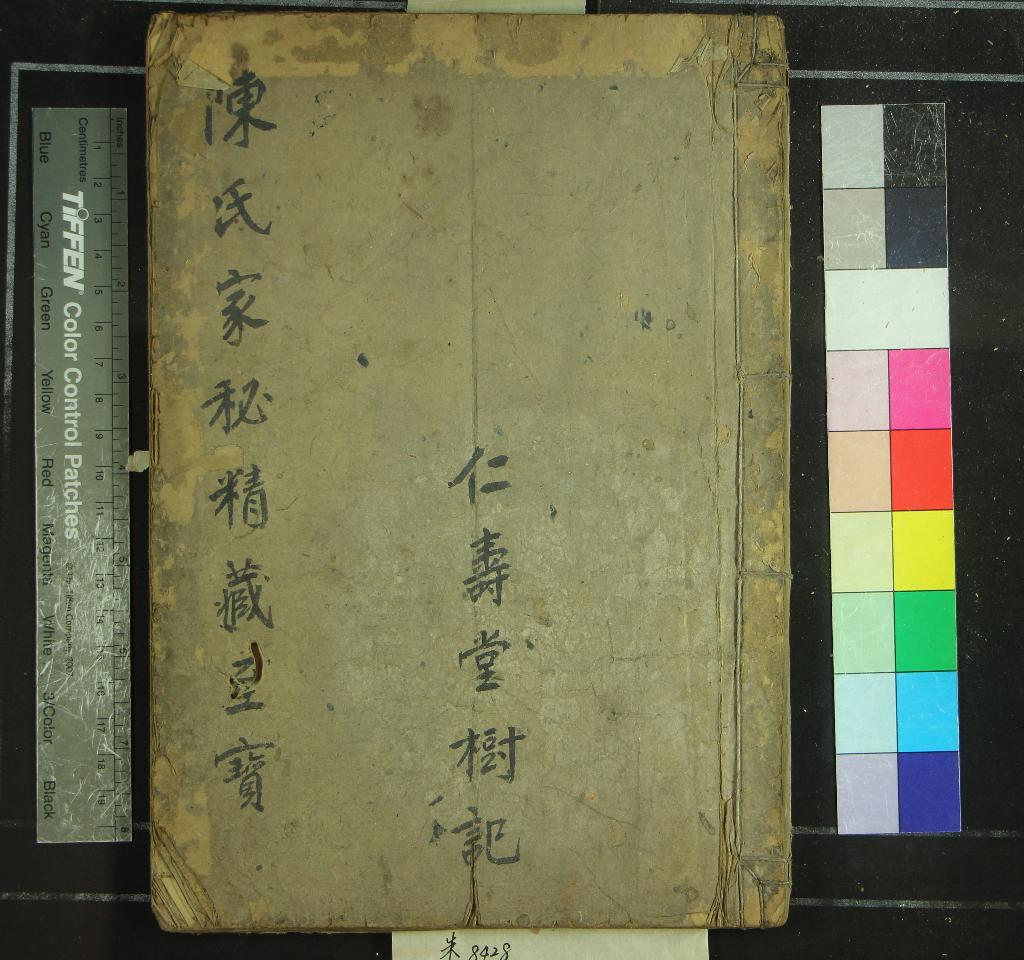 陳氏家秘精藏至寶
仁壽堂樹記
Inches
Centimetres
1 2 3 4 5 6 7 8
1 2 3 4 5 6 7 8 9 10 11 12 13 14 15 16 17 18 19
TIFFEN Color Control Patches
Blue Cyan Green Yellow Red Magenta White 3/Color Black
朱 8428